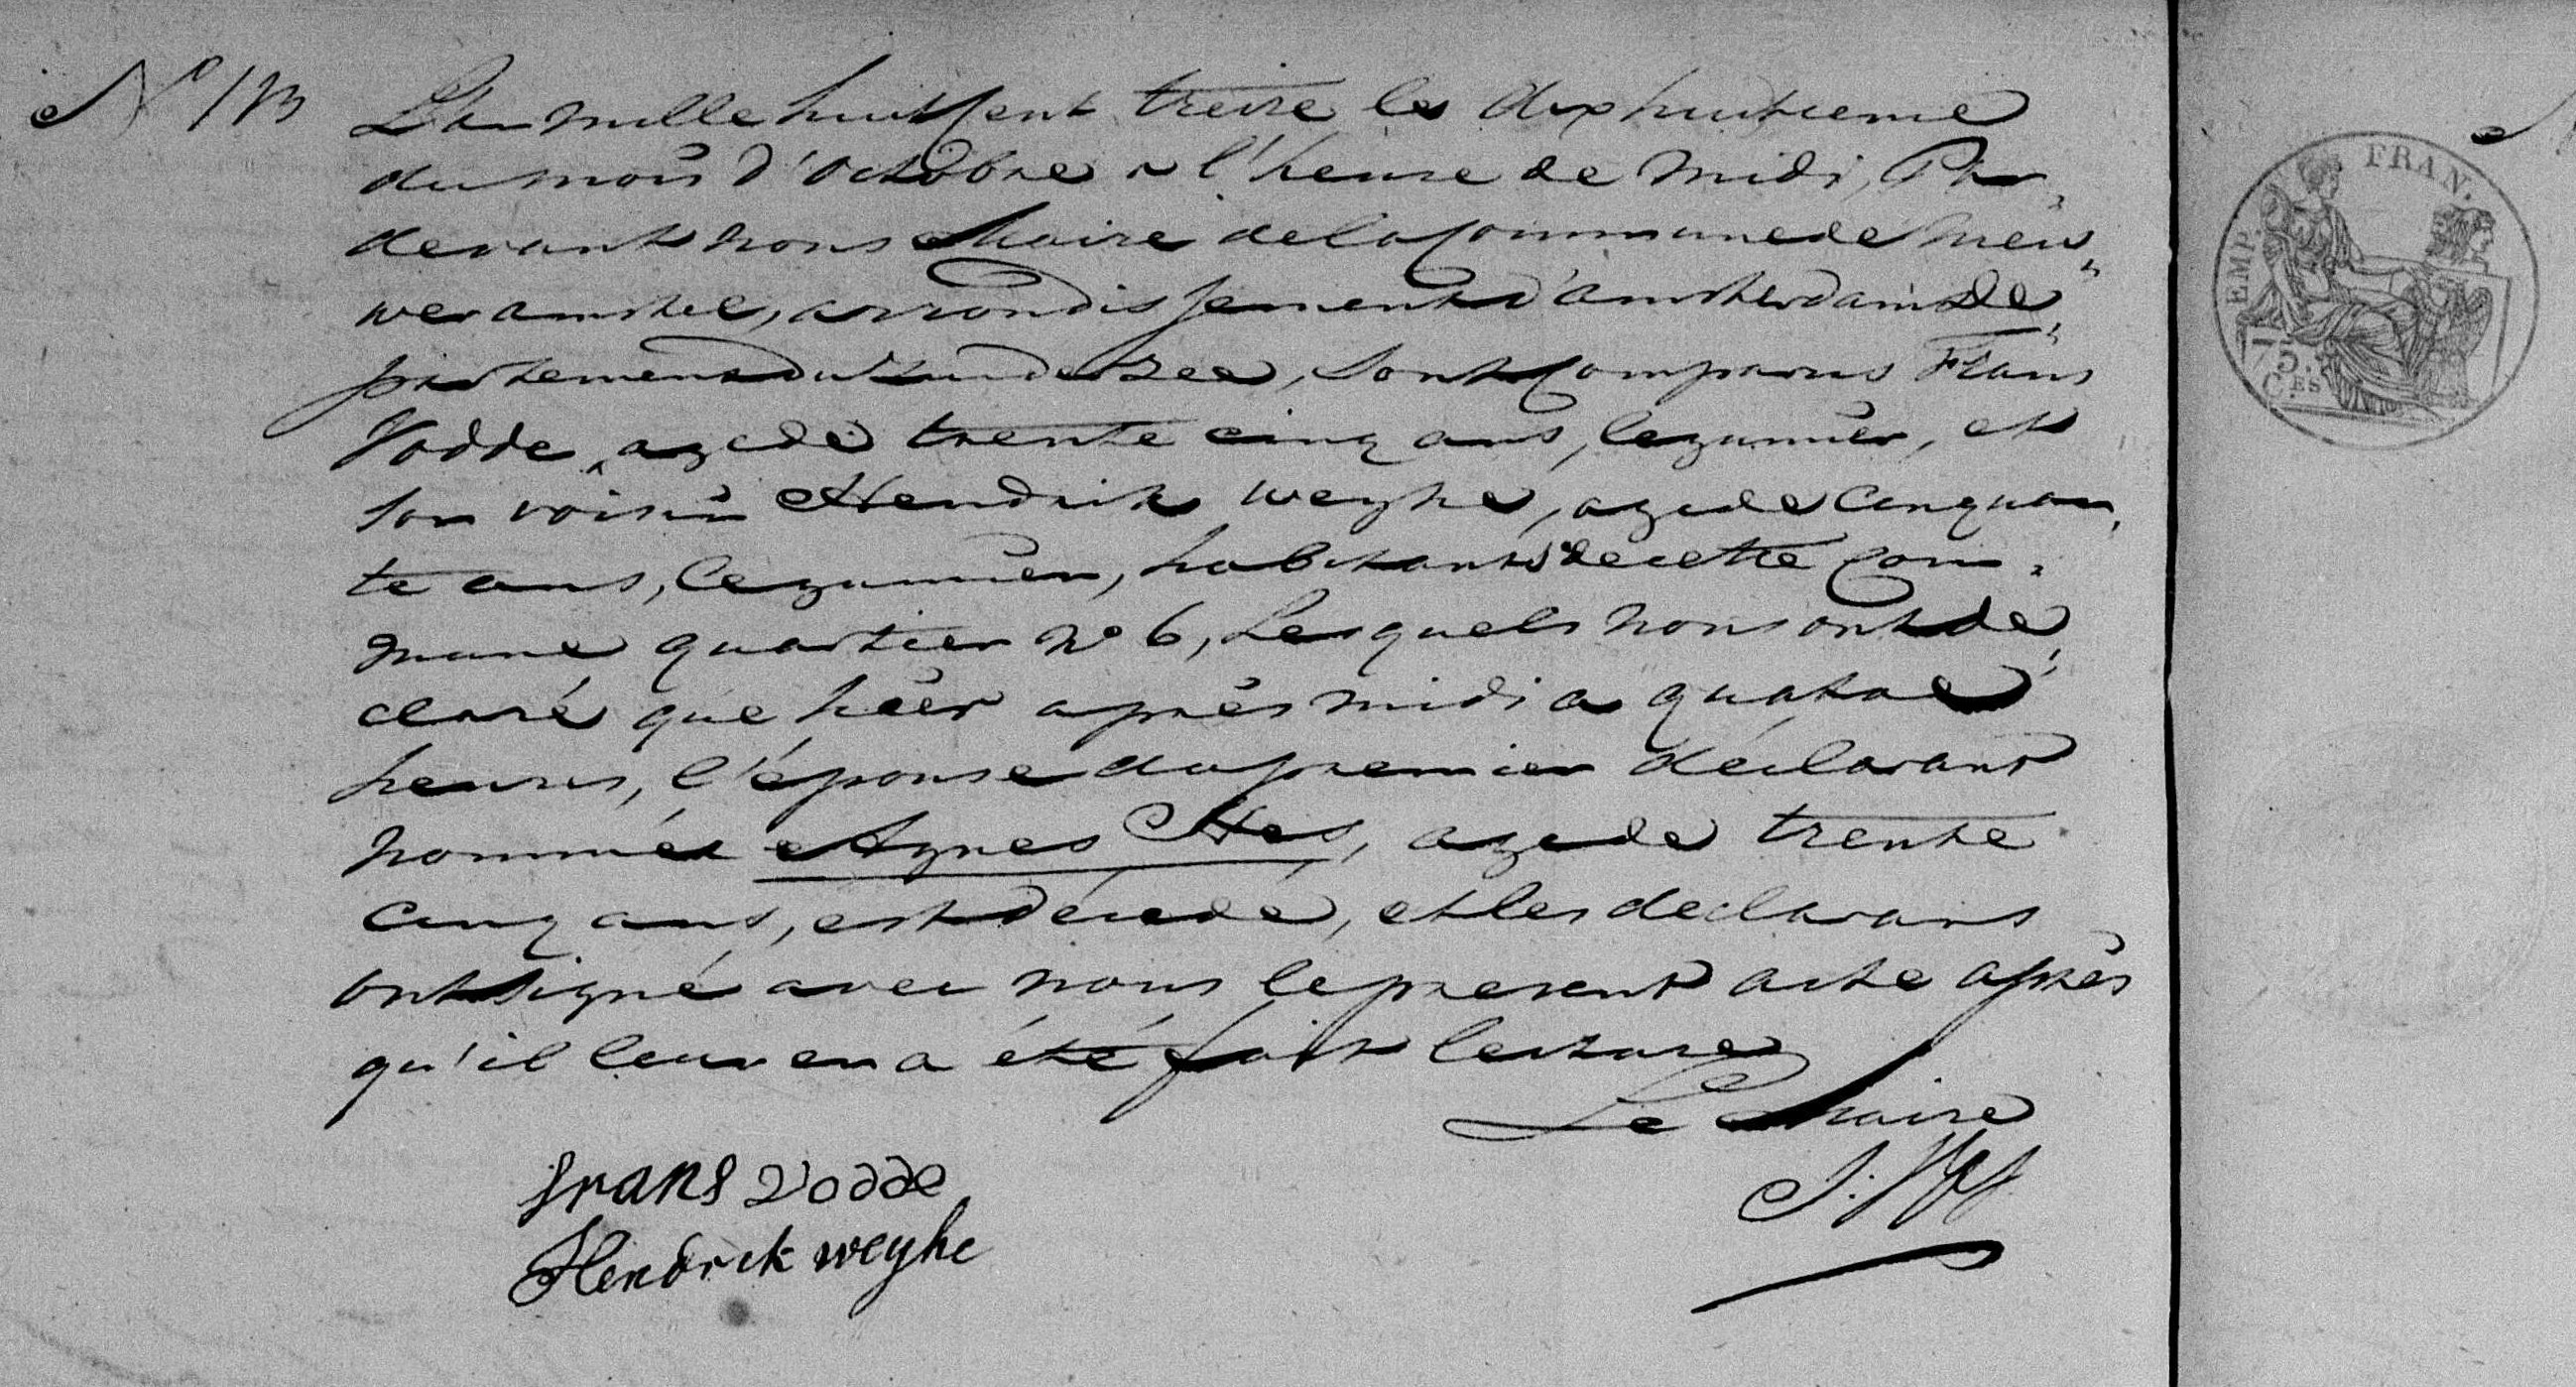 N° 113
L'an mille huit cent treize le dix huitieme
du mois d'Octobre a l'heure de midi, Par,
devant nous Maire de la Commune de Nieu,
wer amstel, arrondissement d'amsterdam De,
partement du Zuiderzee, Sont Comparus Frans
Vodde, agé de trente cinq ans, legumier, et
son voisin Hendrik Weyhe, agé de Cinquan,
te ans, legumier, habitants de cette Com,
mune quartier N° 6, Lesquels nous ont dé,
claré que hier après midi a quatre
heures, l'épouse du premier déclarant
nommée Agnes Hes, agé de trente
cinq ans, est décedé, et les declarans
ont signé avec nous le present acte après
qu'il leur en a été fait lecture
Le Maire
frans vodde
Hendrik weyhe
EMP. FRAN.
75.
C.ES